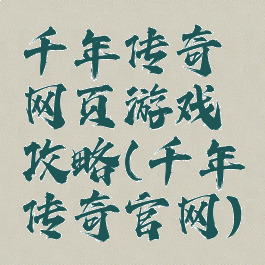 千年传奇
网页游戏
攻略(千年
传奇官网)